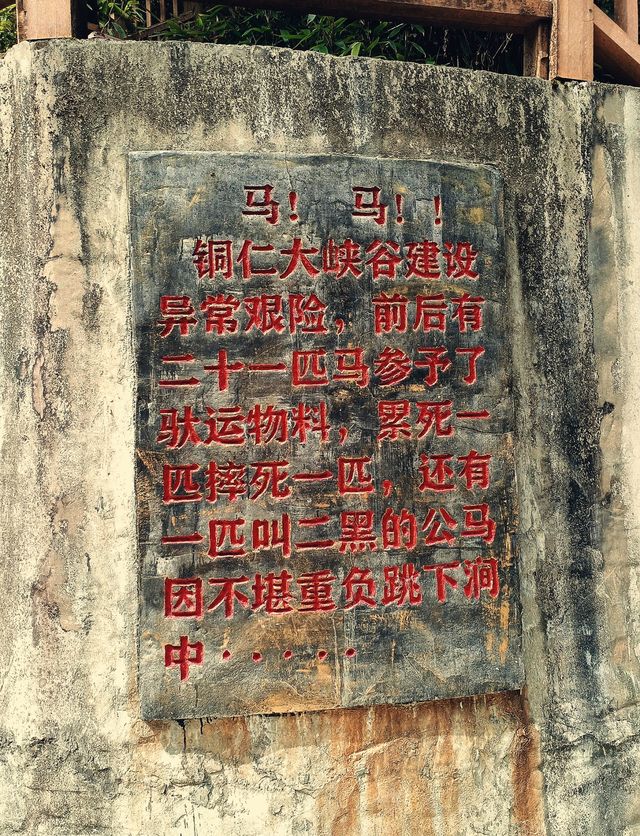 马！ 马！！
铜仁大峡谷建设
异常艰险，前后有
二十一匹马参予了
驮运物料，累死一
匹摔死一匹，还有
一匹叫二黑的公马
因不堪重负跳下涧
中·····